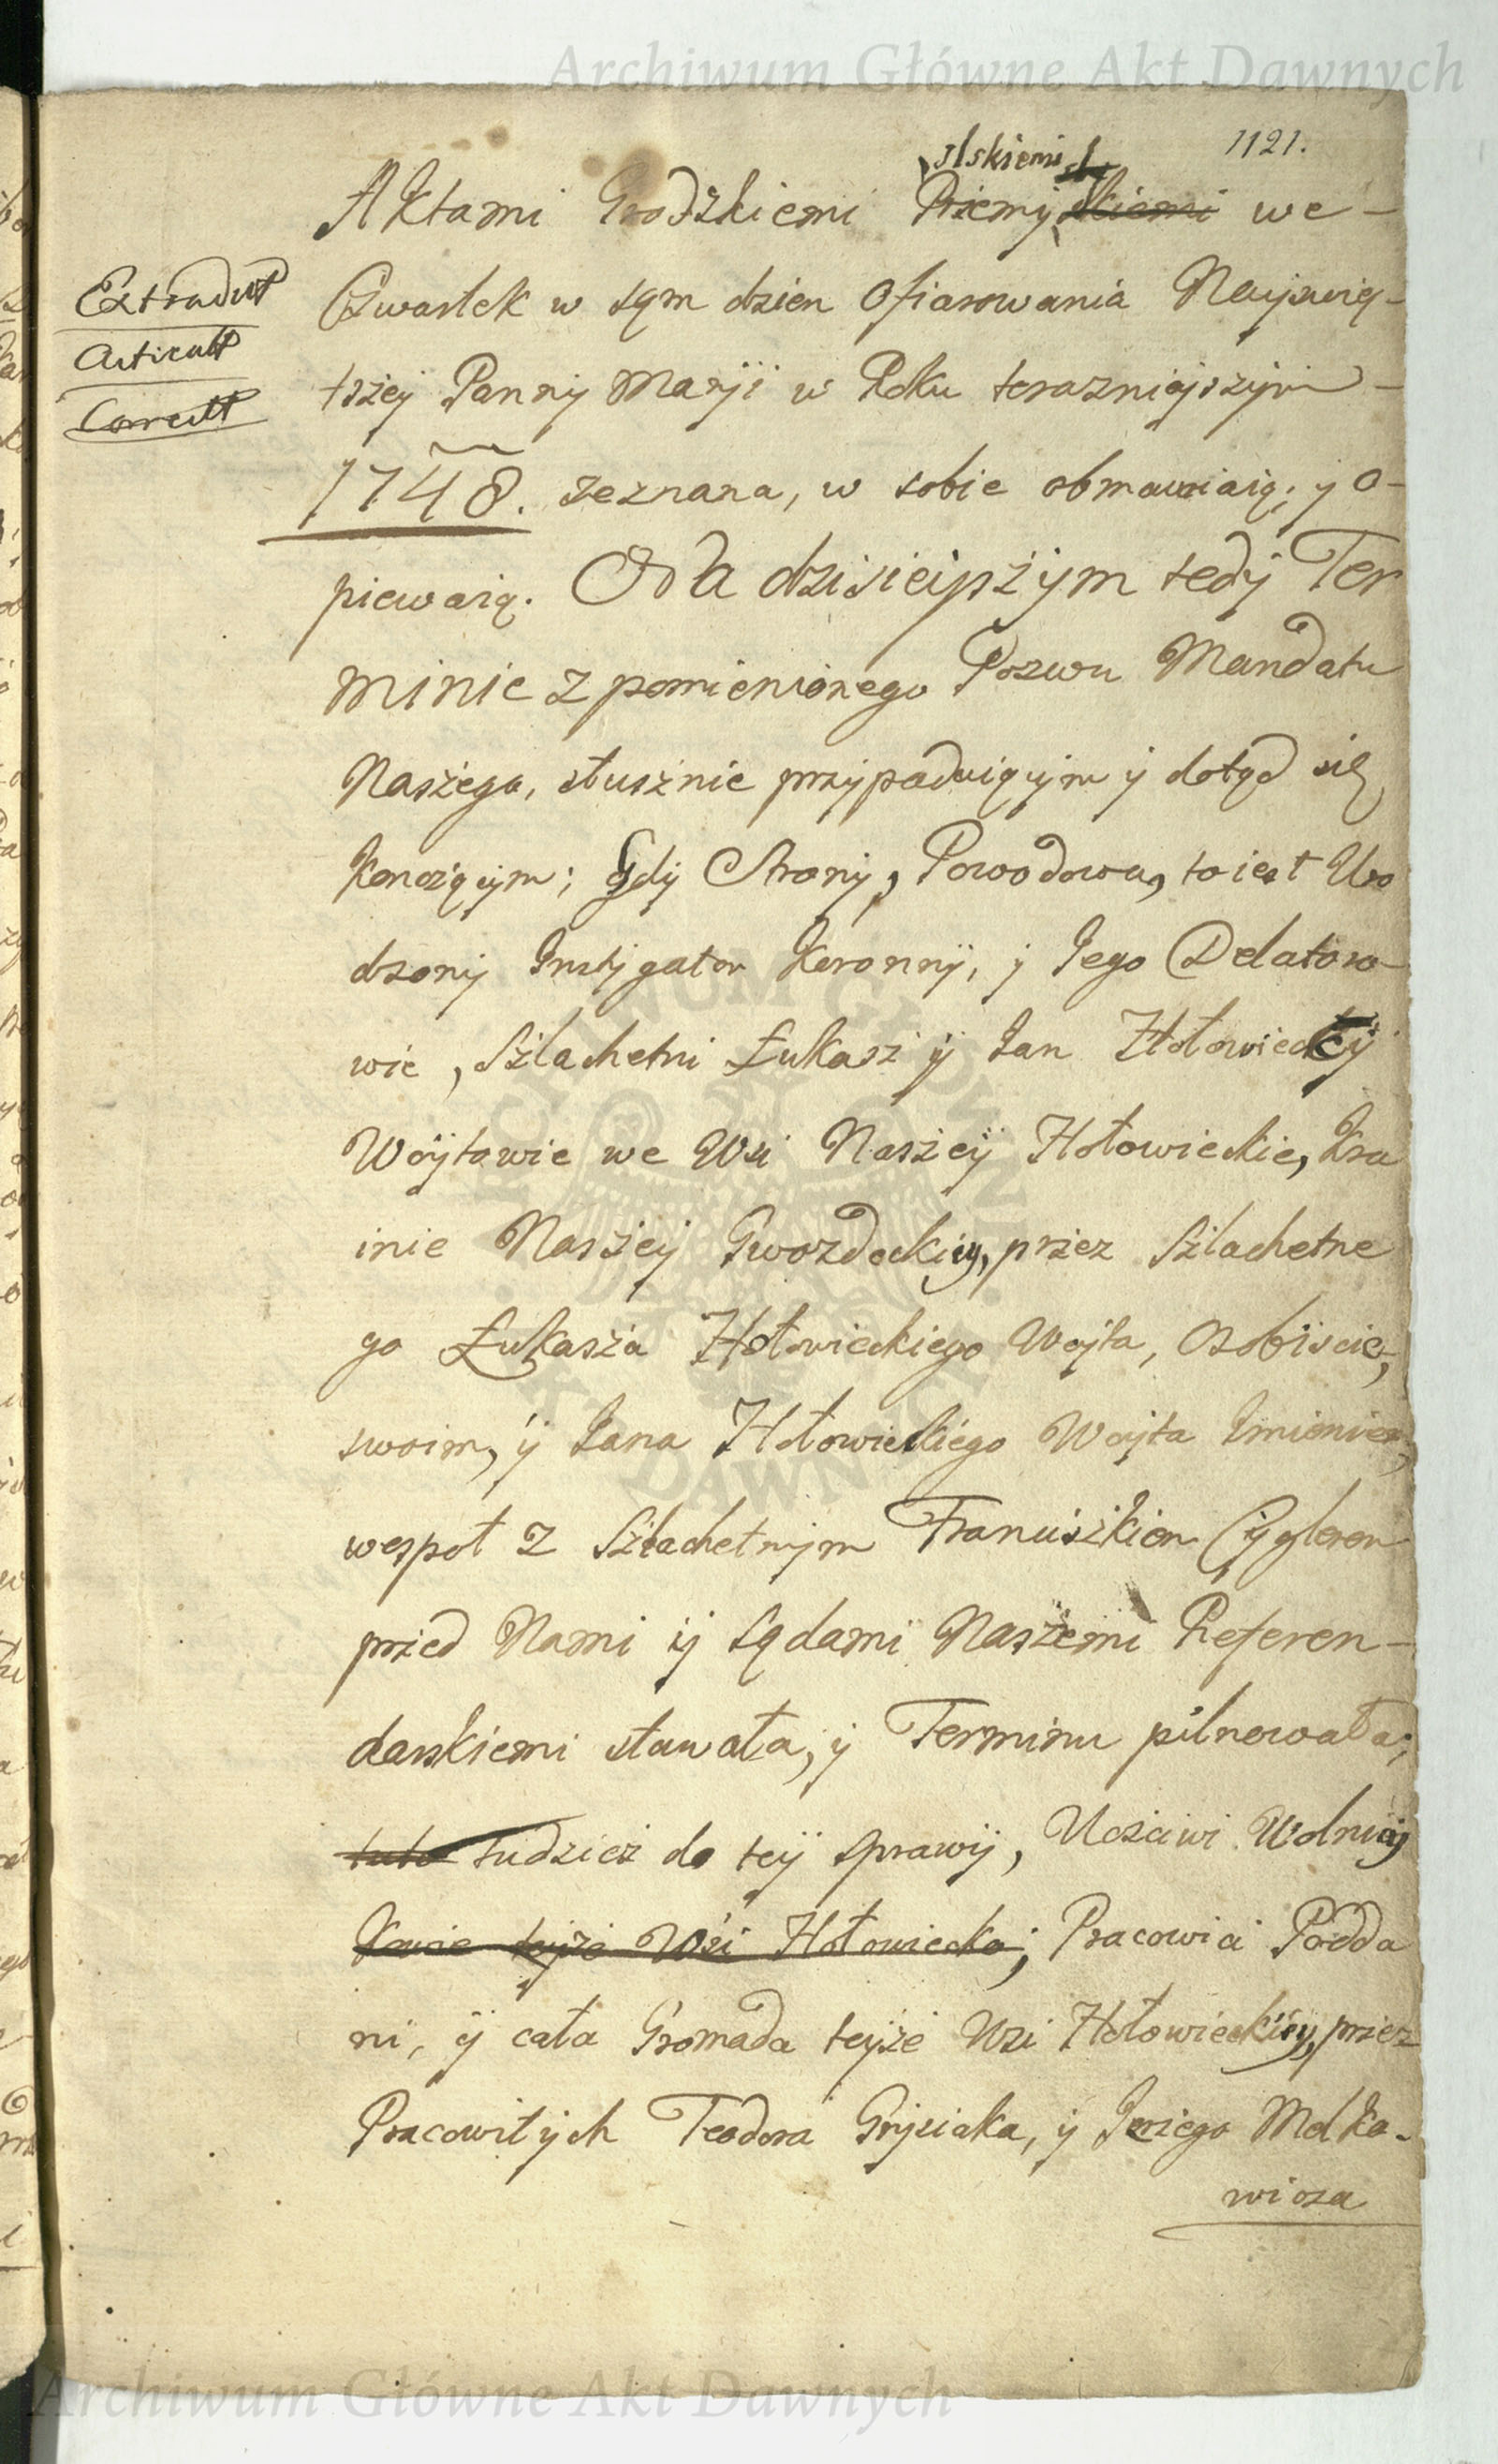 Archiwum Główne Akt Dawnych
1121.
slskiemi
Aktami Grodzkiemi Przemyskiemi we-
Extradut
Czwartek w sąm dzien Ofiarowania Nayswię-
Articult
tszey Panny Maryi w Roku teraznieyszym-
Correctt
1748. zeznana, w sobie obmawiaią, y o-
piewaią. Na dzisieyszym tedy Ter
minie z pomienionego Pozwu Mandatu
Naszego, słusznie przypadaiącym y dotąd się
Konczącym; gdy Strony, Powodowa, to iest Uro
dzony Instygator Koronny, y Jego Delatoro-
wie, Szlachetni Łukasz y Jan Hołowieccy
Woytowie we Wsi Naszey Hołowieckie, Kra
inie Naszey Gwozdeckiey, przez Szlachetne
go Łukasza Hołowieckiego Woyta, Osobiscie,
swoim, y Jana Hołowieckiego Woyta Imieniem,
wespoł z Szlachetnym Franciszkiem Cyglerem
przed Nami y Sądami Naszemi Referen-
darskiemi stawała, y Terminu pilnowała;
tuto tudziesz do tey sprawy, Uczciwi Wolnicy
tejze Wsi Hołowiecko; Pracowici Podda
ni, y cała Gromada teyże Wsi Hołowieckiey, przez
Pracowitych Teodora Grysiaka, y Jerzego Melko-
wicza
Archiwum Główne Akt Dawnych